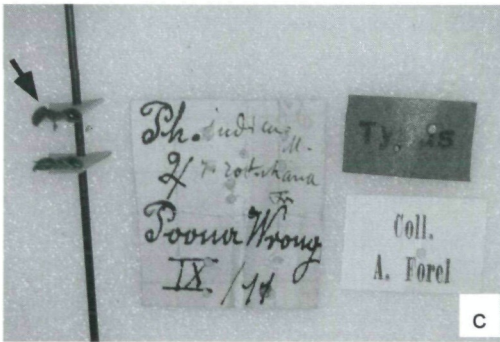 Ph. indica M.
r. rothana
Fr
Poona Wrong
IX. /
Typus
Coll.
A. Forel
C